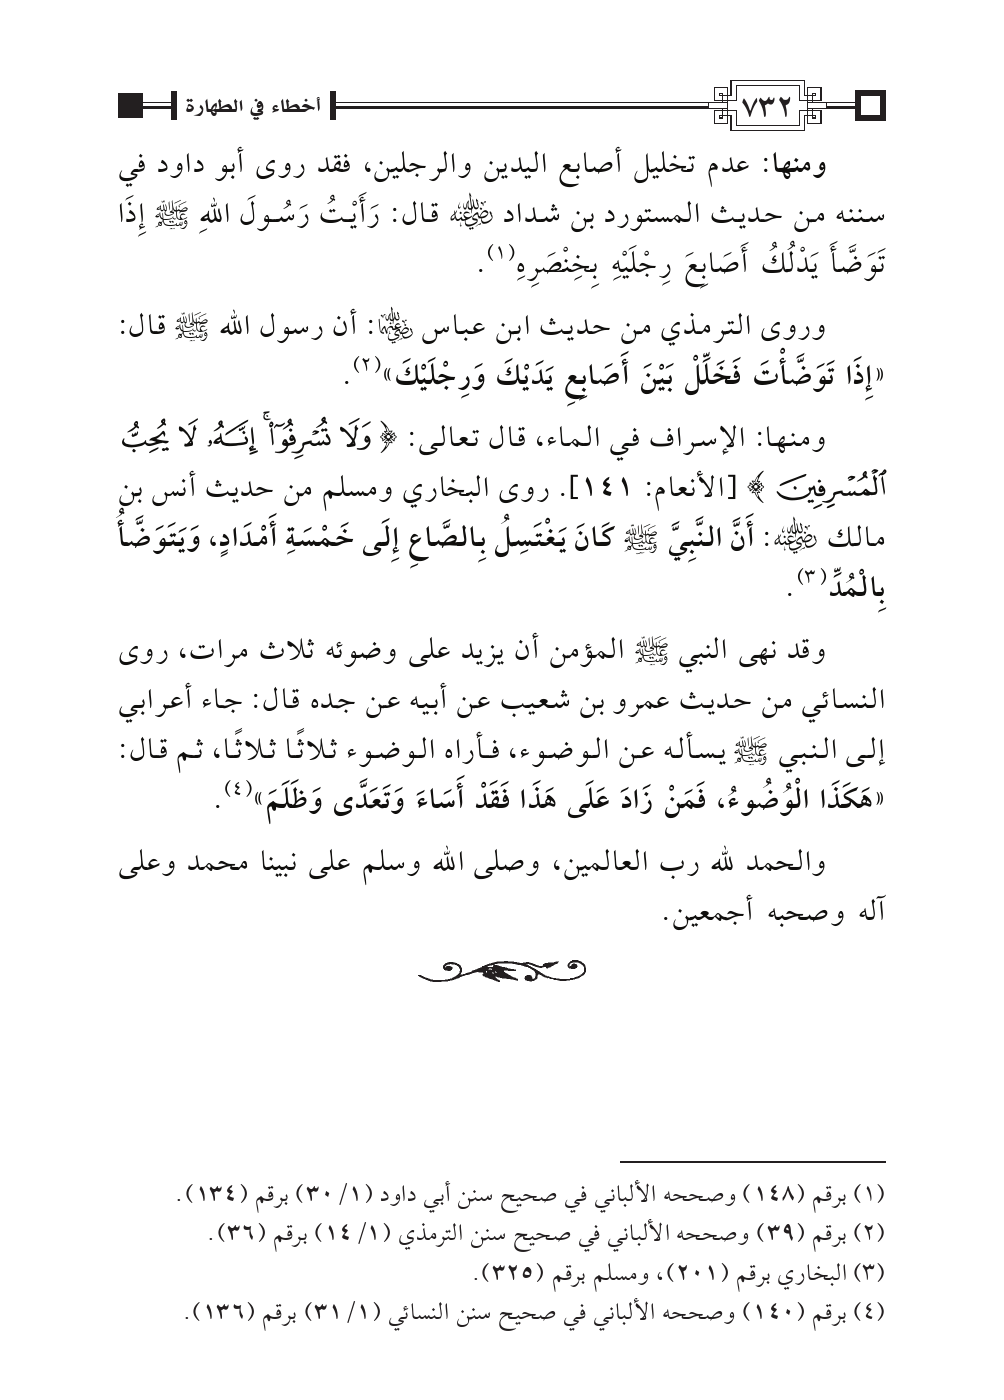 ٧٣٢
أخطاء في الطهارة
ومنها: عدم تخليل أصابع اليدين والرجلين، فقد روى أبو داود في
سننه من حديث المستورد بن شداد رضي الله عنه قال: رَأَيْتُ رَسُولَ اللهِ ﷺ إِذَا
تَوَضَّأَ يَدْلُكُ أَصَابِعَ رِجْلَيْهِ بِخِنْصَرِهِ(١).
وروى الترمذي من حديث ابن عباس رضي الله عنهما: أن رسول الله ﷺ قال:
«إِذَا تَوَضَّأْتَ فَخَلِّلْ بَيْنَ أَصَابِعِ يَدَيْكَ وَرِجْلَيْكَ»(٢).
ومنها: الإسراف في الماء، قال تعالى: ﴿ وَلَا تُسْرِفُوٓا۟ ۚ إِنَّهُۥ لَا يُحِبُّ
ٱلْمُسْرِفِينَ ﴾ [الأنعام: ١٤١]. روى البخاري ومسلم من حديث أنس بن
مالك رضي الله عنه: أَنَّ النَّبِيَّ ﷺ كَانَ يَغْتَسِلُ بِالصَّاعِ إِلَى خَمْسَةِ أَمْدَادٍ، وَيَتَوَضَّأُ
بِالْمُدِّ(٣).
وقد نهى النبي ﷺ المؤمن أن يزيد على وضوئه ثلاث مرات، روى
النسائي من حديث عمرو بن شعيب عن أبيه عن جده قال: جاء أعرابي
إلى النبي ﷺ يسأله عن الوضوء، فأراه الوضوء ثلاثًا ثلاثًا، ثم قال:
«هَكَذَا الْوُضُوءُ، فَمَنْ زَادَ عَلَى هَذَا فَقَدْ أَسَاءَ وَتَعَدَّى وَظَلَمَ»(٤).
والحمد لله رب العالمين، وصلى الله وسلم على نبينا محمد وعلى
آله وصحبه أجمعين.
(١) برقم (١٤٨) وصححه الألباني في صحيح سنن أبي داود (١/ ٣٠) برقم (١٣٤).
(٢) برقم (٣٩) وصححه الألباني في صحيح سنن الترمذي (١/ ١٤) برقم (٣٦).
(٣) البخاري برقم (٢٠١)، ومسلم برقم (٣٢٥).
(٤) برقم (١٤٠) وصححه الألباني في صحيح سنن النسائي (١/ ٣١) برقم (١٣٦).